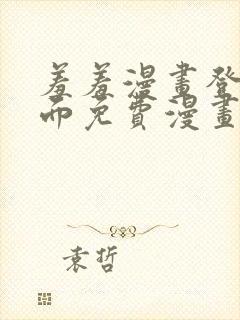 羞羞漫畫登
而免費漫畫
袁哲